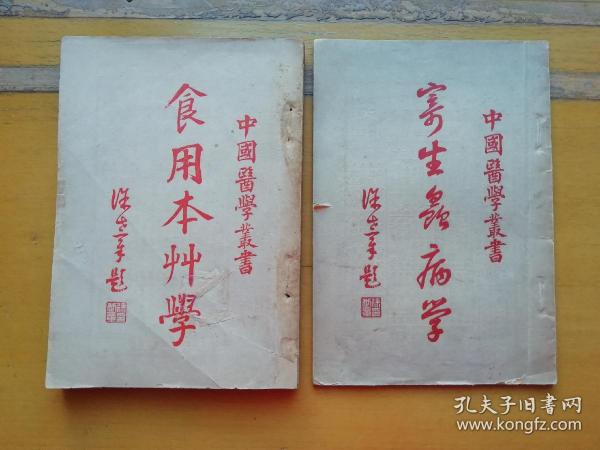 中國醫學叢書
食用本艸學
題
中國醫學叢書
寄生蟲病学
題
孔夫子旧书网
www.kongfz.com